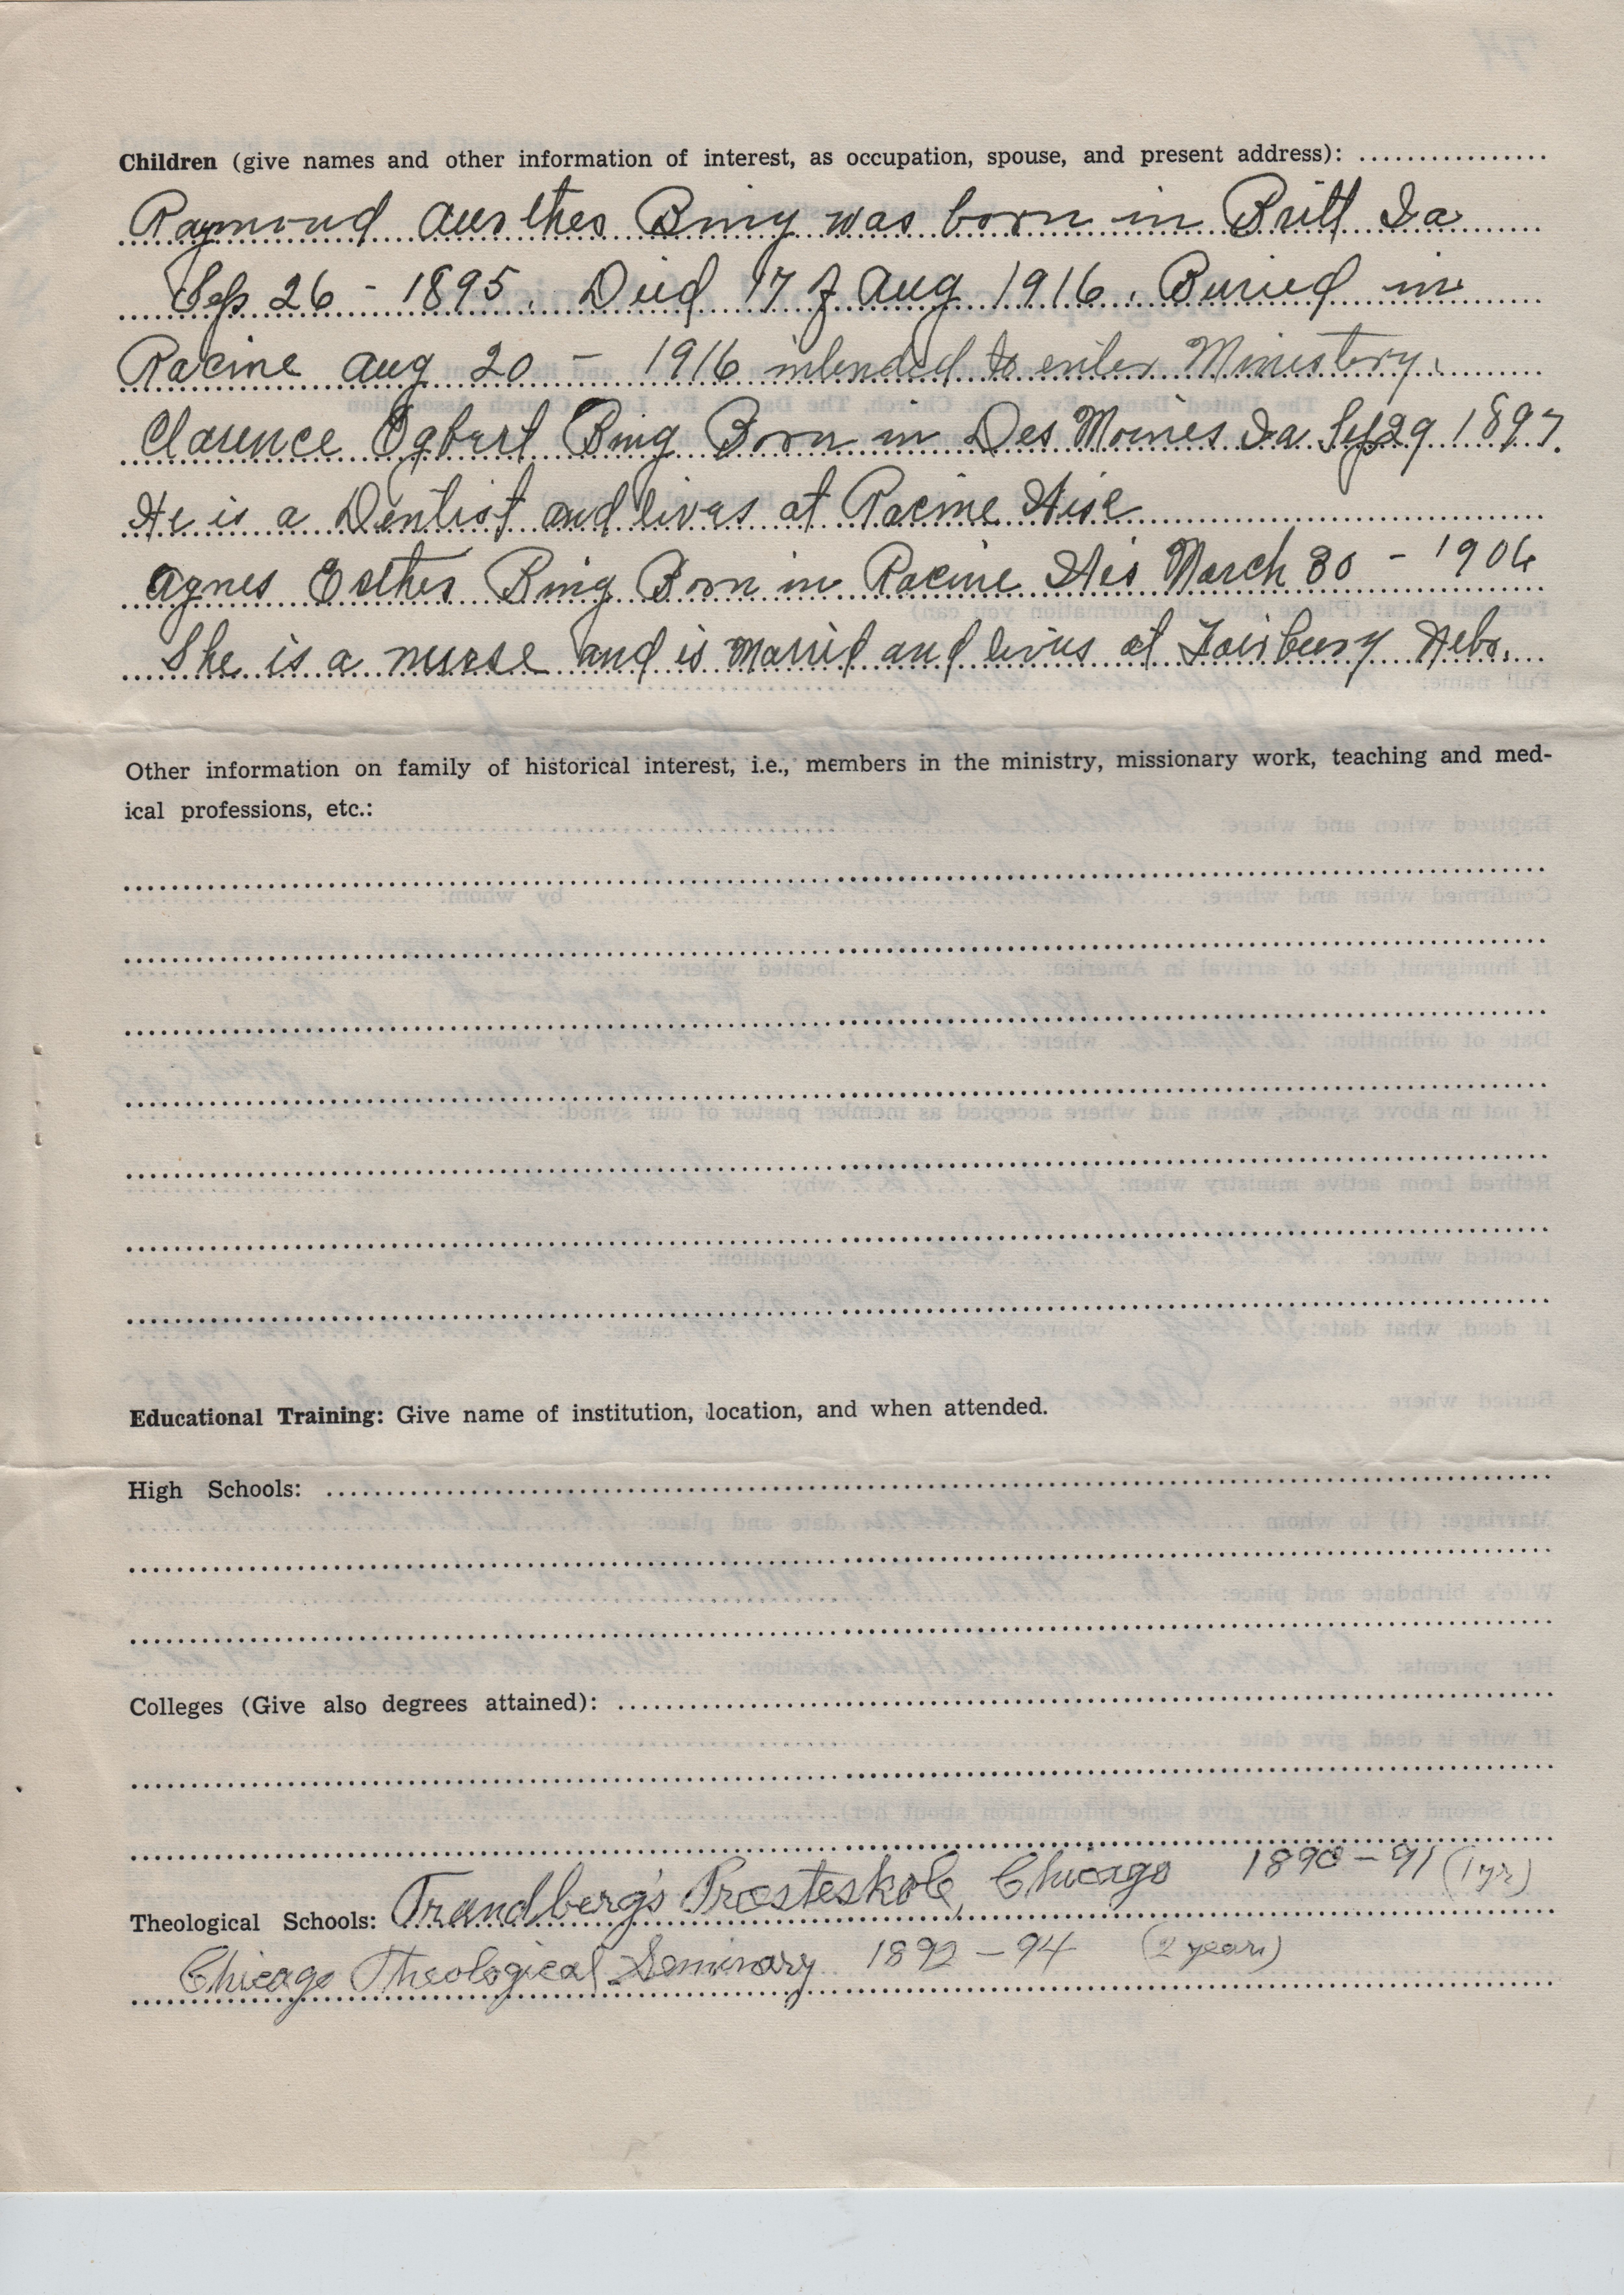 Children (give names and other information of interest, as occupation, spouse, and present address): ................
Raymond Bing was born in Britt Ia
Sep 26 - 1895. Died 17 of Aug 1916. Buried in
Racine Aug 20 - 1916 intended to enter Ministery.
Clarence Egbert Bing Born in Des Moines Ia Sep 29 1897.
He is a Dentist and lives at Racine Wisc
Agnes Esther Bing Born in Racine Wis March 30 - 1906
She is a nurse and is married and livus at Fairbury Nebr.
Other information on family of historical interest, i.e., members in the ministry, missionary work, teaching and med-
ical professions, etc.:
Educational Training: Give name of institution, location, and when attended.
High Schools:
Colleges (Give also degrees attained):
Theological Schools: Trandberg's Presteskole, Chicago 1890-91 (1 yr)
Chicago Theological Seminary 1892-94 (2 years)